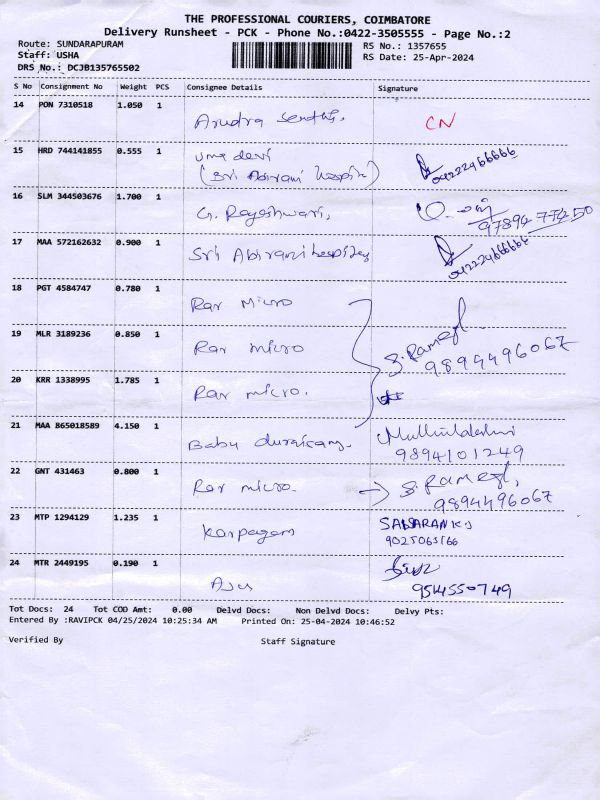 THE PROFESSIONAL COURIERS, COIMBATORE
Delivery Runsheet - PCK - Phone No.:0422-3505555 - Page No.:2
Route: SUNDARAPURAM
RS No.: 1357655
Staff: USHA
RS Date: 25-Apr-2024
DRS No.: DCJB135765502
S No Consignment No Weight PCS Consignee Details Signature
14 PON 7310518 1.050 1 Arudra Sendhil. CN
15 HRD 744141855 0.555 1 uma devi
(Sri Abirami hospital) 04222466666
16 SLM 344503676 1.700 1 G. Rajeshwari,
9789477450
17 MAA 572162632 0.900 1 Sri Abirami hospital 04222466666
18 PGT 4584747 0.780 1 Rar Micro
19 MLR 3189236 0.850 1 Rar micro S.Ramesh
9894496067
20 KRR 1338995 1.785 1 Rar micro.
21 MAA 865018589 4.150 1 Babu duraisamy.
9894101249
22 GNT 431463 0.800 1 Rar micro. → S.Ramesh,
9894496067
23 MTP 1294129 1.235 1 Karpagam
24 MTR 2449195 0.190 1 Aju
9514550749
Tot Docs: 24 Tot COD Amt: 0.00 Delvd Docs: Non Delvd Docs: Delvy Pts:
Entered By :RAVIPCK 04/25/2024 10:25:34 AM Printed On: 25-04-2024 10:46:52
Verified By Staff Signature